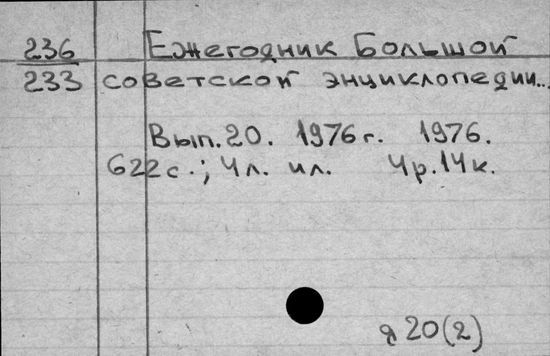 236 Ежегодник Большой
233 советской энциклопедии..
Вып. 20. 1976 г. 1976.
622 с.; 4 л. ил. 4 р. 14 к.
я 20(2)